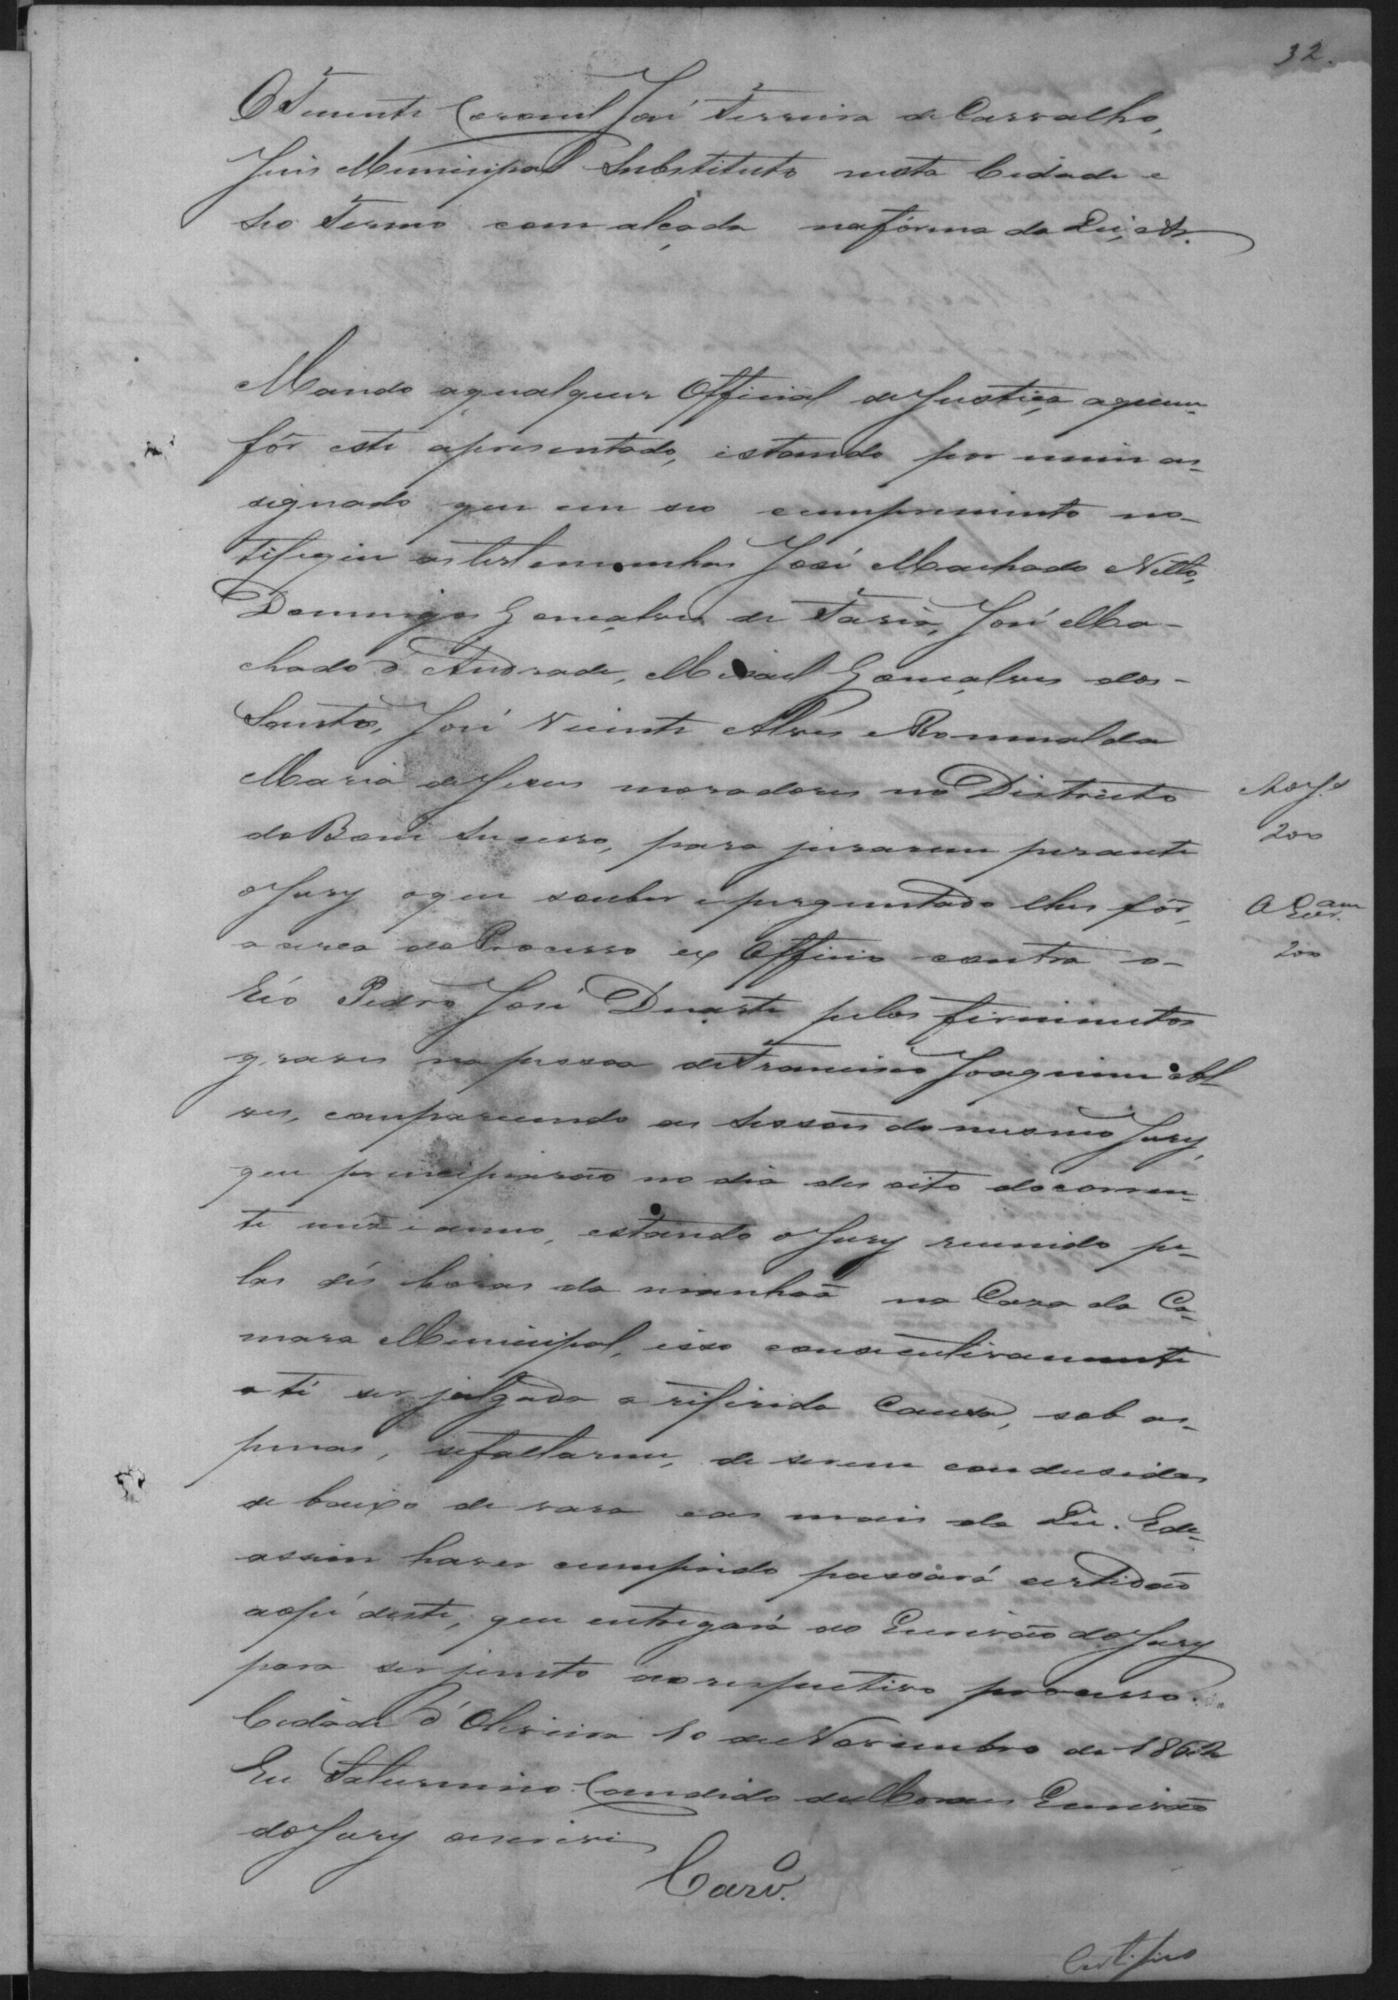 32.
O Tenente Coronel José Ferreira de Carvalho,
Juis Municipal Substituto nesta Cidade e
seo Termo com alçada na fórma da Lei, etc.
Mando a qualquer Official de Justiça a quem
fôr este apresentado, estando por mim as-
signado que em seo cumprimento no-
tifique as testemunhas José Machado Netto,
Domingos Gonçalves de Faria, José Ma-
chado d'Andrade, Misael Gonçalves dos
Santos, José Vicente Alves e Romualda
Maria de Jesus moradores no Districto
do Bom Sucesso, para jurarem perante
o Jury o que souber e perguntado lhes fôr,
a cerca do Processo ex Officio contra o
Réo Pedro José Duarte pelos firimentos
graves na pessoa de Francisco Joaquim Al-
ves, comparecendo as Sessoes do mesmo Jury,
que principiarão no dia des oito do corren-
te mêz e anno, estando o Jury reunido pe-
las dés horas da manhaã na Caza da Ca-
mara Municipal, isso consecutivamente
a té ser julgada a referida Causa, sob as
penas, se faltarem, de serem condusidas
de baixo de vara e as mais da Lei. E de
assim haver cumprido passará certidaõ
ao pé deste, que entregará ao Escrivão do Jury
para ser junto ao respectivo processo.
Cidade d'Oliveira 10 de Novembro de 1862
Eu Saturnino Candido de Moraes Escrivão
do Jury o escrivi
Carvo.
Ao J.
200
Ao Escram
200
Certifico